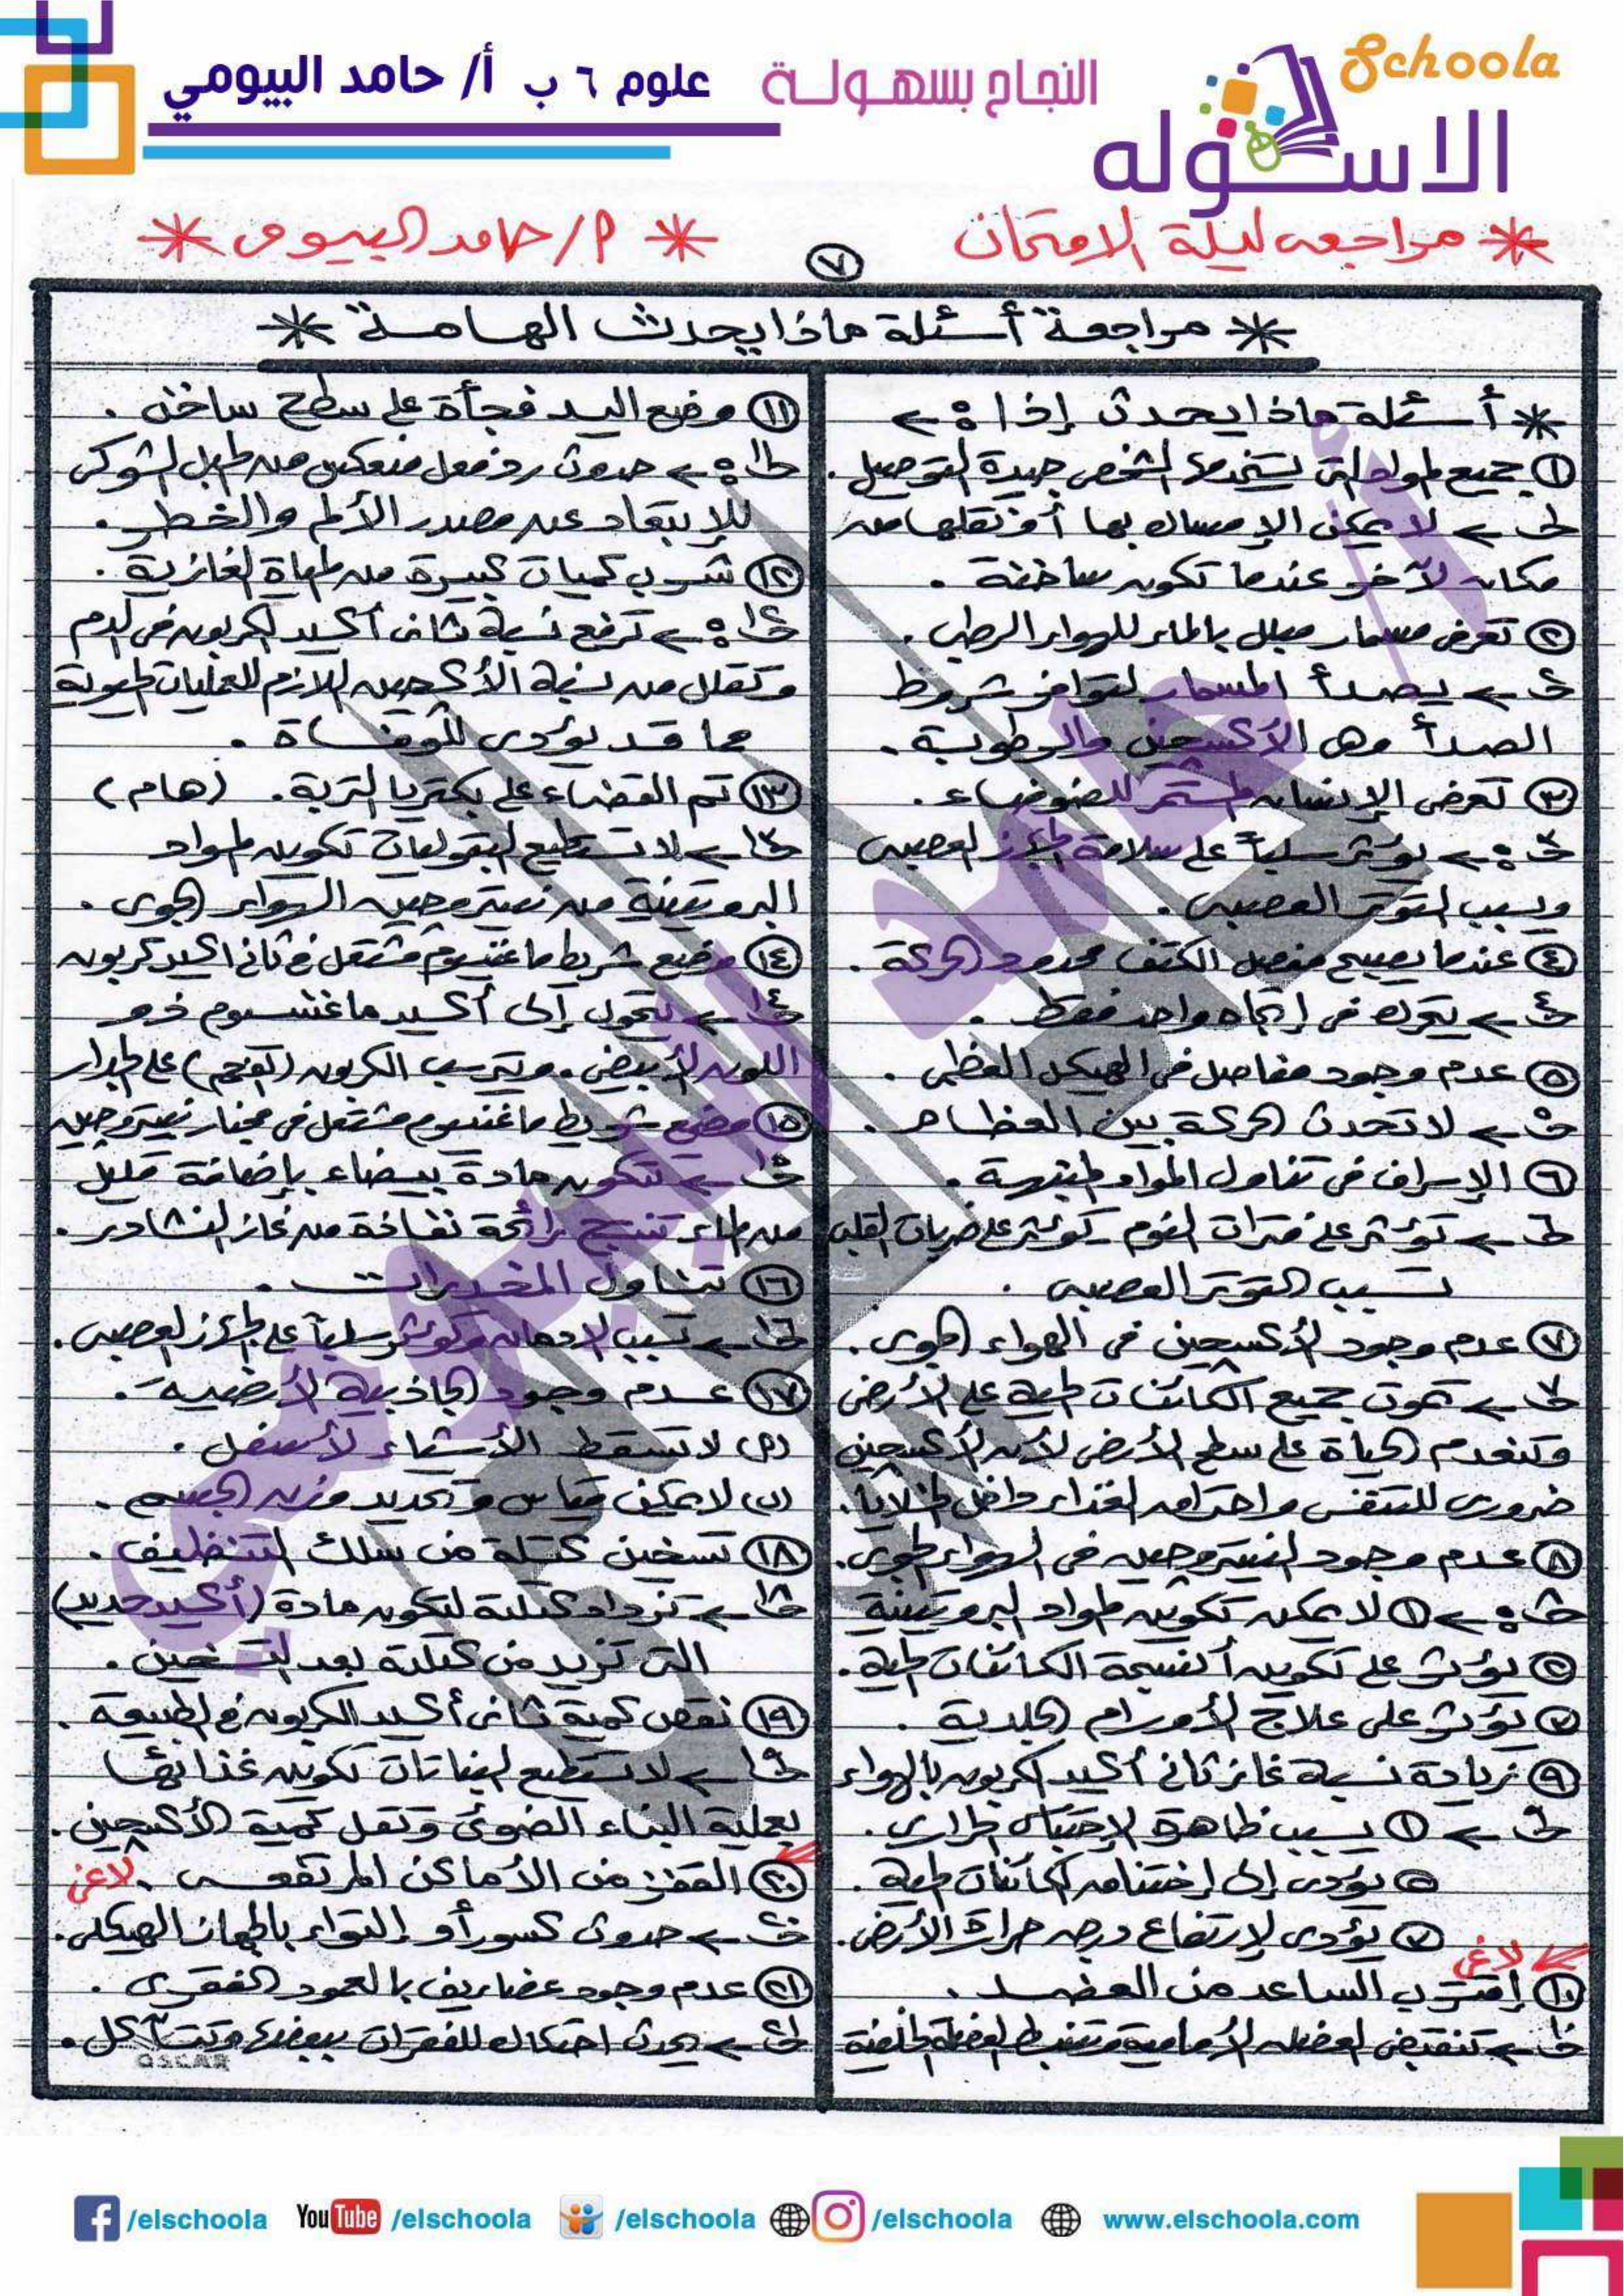 Schoola
الاسكوله
النجاح بسهولة
علوم ٦ ب أ/ حامد البيومي
* مراجعة ليلة الامتحان * أ/ حامد البيومى *
٧
* مراجعة أسئلة ماذا يحدث الهامة *
* أسئلة ماذا يحدث إذا :-
١ جميع المواد التى يستخدمها الشخص جيدة التوصيل .
جـ ← لا يمكن الإمساك بها أو نقلها من
مكان لآخر عندما تكون ساخنة .
٢ تعرض مسمار مبلل بالماء للهواء الرطب .
جـ ← يصدأ المسمار لتوافر شروط
الصدأ وهى الأكسجين والرطوبة .
٣ تعرض الإنسان المستمر للضوضاء .
جـ ← يؤثر سلباً على سلامة الجهاز العصبى
ويسبب التوتر العصبى .
٤ عندما يصبح مفصل الكتف محدود الحركة .
جـ ← يتحرك فى إتجاه واحد فقط .
٥ عدم وجود مفاصل فى الهيكل العظمى .
جـ ← لا تحدث الحركة بين العظام .
٦ الإسراف فى تناول المواد المنبهة .
جـ ← تؤثر على فترات النوم - تؤثر على ضربات القلب
تسبب التوتر العصبى .
٧ عدم وجود الأكسجين فى الهواء الجوى .
جـ ← تموت جميع الكائنات الحية على الأرض
وتنعدم الحياة على سطح الأرض لأن الأكسجين
ضرورى للتنفس واحتراق الغذاء داخل الخلايا .
٨ عدم وجود النيتروجين فى الهواء الجوى .
جـ ← ١ لا يمكن تكوين المواد البروتينية
٢ يؤثر على تكوين أنسجة الكائنات الحية .
٣ يؤثر على علاج الأورام الجلدية .
٩ زيادة نسبة غاز ثانى أكسيد الكربون بالهواء
جـ ← ١ يسبب ظاهرة الإحتباس الحرارى .
٢ يؤدى إلى إختناق الكائنات الحية .
٣ يؤدى لإرتفاع درجة حرارة الأرض .
لاغى
١٠ إقترب الساعد من العضد .
جـ ← تنقبض العضلة الأمامية وتنبسط العضلة الخلفية
١١ وضع اليد فجأة على سطح ساخن .
جـ ← حدوث رد فعل منعكس من الحبل الشوكى
للإبتعاد عن مصدر الألم والخطر .
١٢ شرب كميات كبيرة من المياة الغازية .
جـ ← ترفع نسبة ثانى أكسيد الكربون فى الدم
وتقلل من نسبة الأكسجين اللازم للعمليات الحيوية
مما قد يؤدى للوفاة .
١٣ تم القضاء على بكتريا التربة . (هام)
جـ ← لا تستطيع البقوليات تكوين المواد
البروتينية من نيتروجين الهواء الجوى .
١٤ وضع شريط ماغنسيوم مشتعل فى ثانى أكسيد كربون
جـ ← يتحول إلى أكسيد ماغنسيوم ذو
اللون الأبيض . ويترسب الكربون (الفحم) على الجدار
١٥ وضع شريط ماغنسيوم مشتعل فى مخبار نيتروجين
جـ ← تتكون مادة بيضاء بإضافة قليل
من الماء تنتج رائحة نفاذة من غاز النشادر .
١٦ تناول المخدرات .
جـ ← تسبب الإدمان وتؤثر سلباً على الجهاز العصبى .
١٧ عدم وجود الجاذبية الأرضية .
(أ) لا تسقط الأشياء لأسفل .
(ب) لا يمكن قياس وتحديد وزن الجسم .
١٨ تسخين كتلة من سلك التنظيف .
جـ ← تزداد كتلته لتكون مادة (أكسيد حديد)
التى تزيد من كتلته بعد التسخين .
١٩ نقص كمية ثانى أكسيد الكربون فى الطبيعة .
جـ ← لا تستطيع النباتات تكوين غذائها
بعملية البناء الضوئى وتقل كمية الأكسجين .
٢٠ القفز من الأماكن المرتفعة . لاغى
جـ ← حدوث كسور أو إلتواء بالجهاز الهيكلى .
٢١ عدم وجود غضاريف بالعمود الفقرى .
جـ ← يحدث احتكاك للفقرات ببعضها وتتآكل .
OSCAR
أ / حامد البيومي
/elschoola YouTube /elschoola /elschoola /elschoola www.elschoola.com